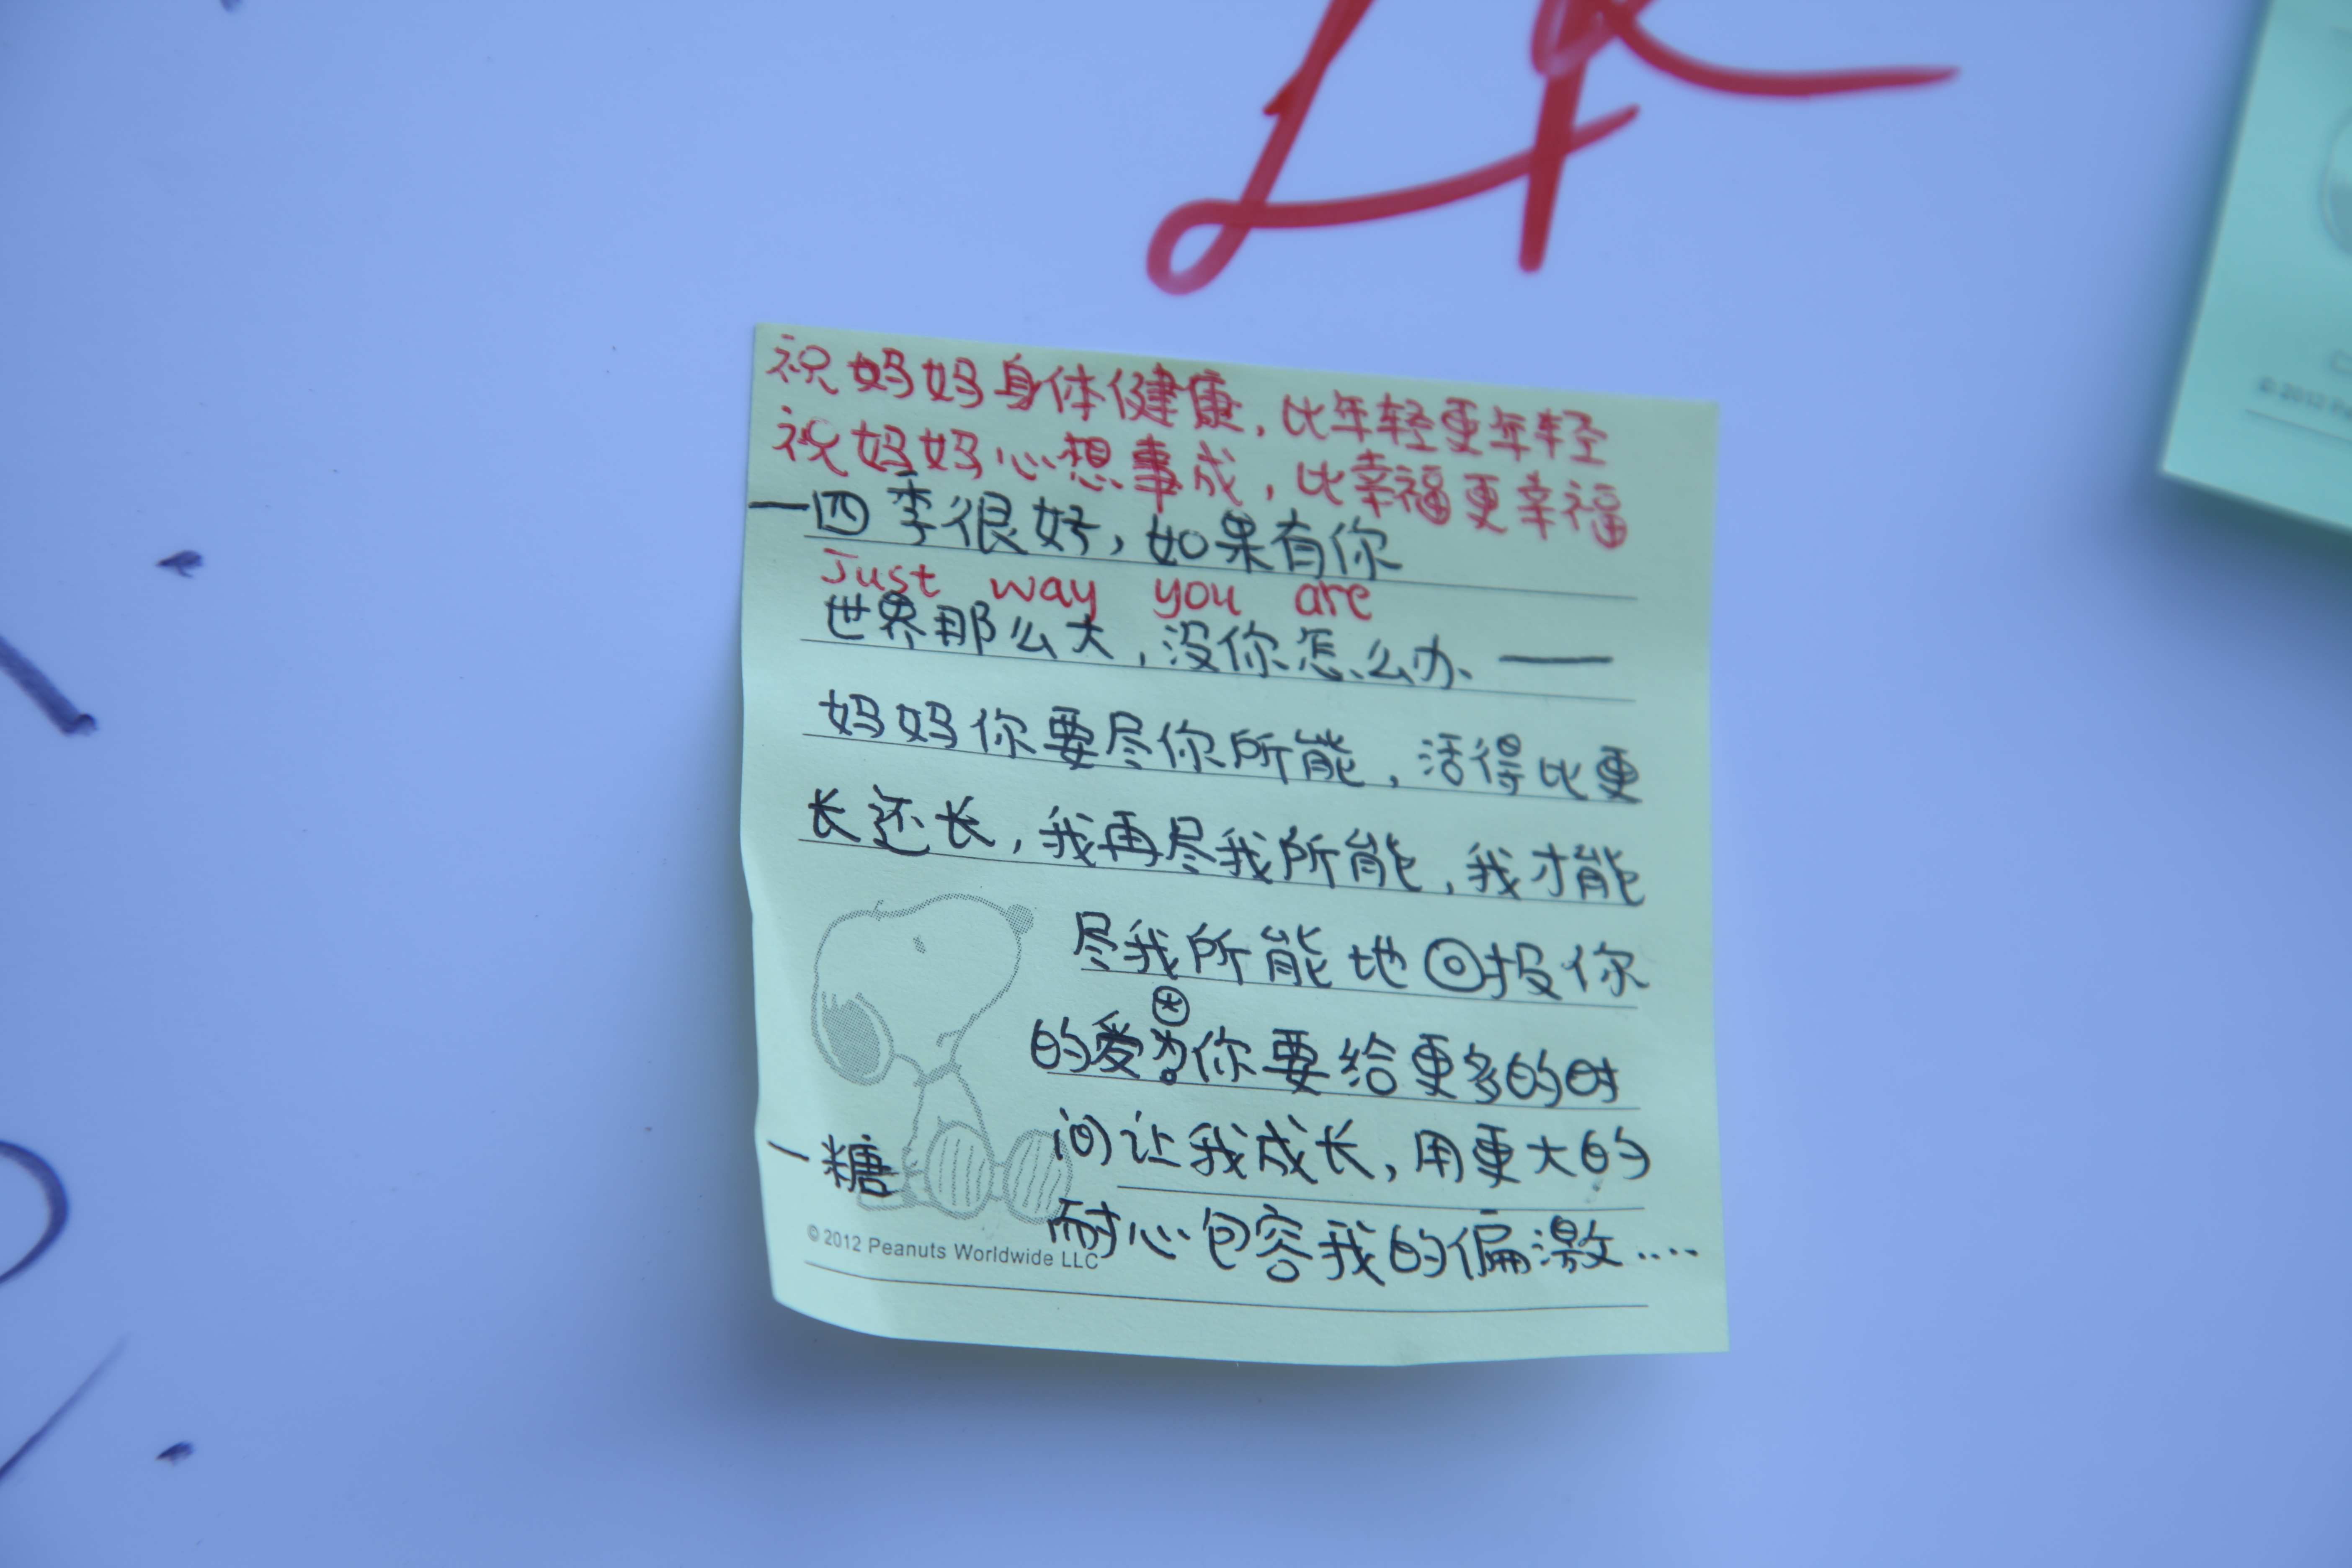 祝妈妈身体健康,比年轻更年轻
祝妈妈心想事成,比幸福更幸福
一四季很好,如果有你
Just way you are
世界那么大,没你怎么办、——
妈妈你要尽你所能,活得比更
长还长,我再尽我所能,我才能
尽我所能地回投你
的爱为你要给更多的时
间让我成长,用更大的
耐心包容我的偏激....
一糖
© 2012 Peanuts Worldwide LLC
© 2012 Pe